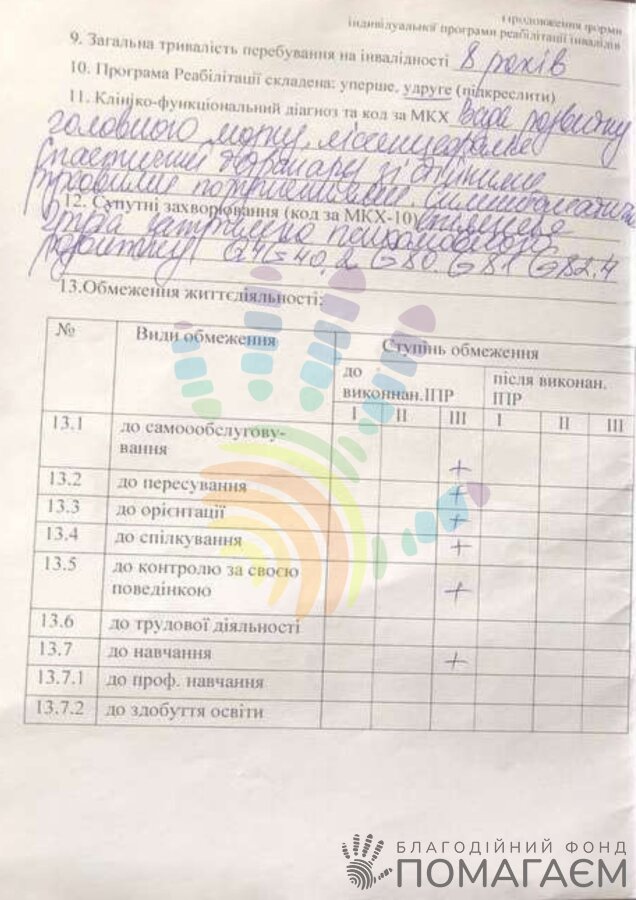 Продовження форми
індивідуальної програми реабілітації інвалідів
9. Загальна тривалість перебування на інвалідності 8 років
10. Програма Реабілітації складена: уперше, удруге (підкреслити)
11. Клініко-функціональний діагноз та код за МКХ Вада розвитку
головного мозку,
12. Супутні захворювання (код за МКХ-10)
затримка
розвитку G40,2 G80. G81 G82.4
13.Обмеження життєдіяльності:
№ Види обмеження Ступінь обмеження
до виконнан.ІПР після виконан. ІПР
I II III I II III
13.1 до самоообслугову-
вання +
13.2 до пересування +
13.3 до орієнтації +
13.4 до спілкування +
13.5 до контролю за своєю
поведінкою +
13.6 до трудової діяльності
13.7 до навчання +
13.7.1 до проф. навчання
13.7.2 до здобуття освіти
БЛАГОДІЙНИЙ ФОНД
ПОМАГАЄМ